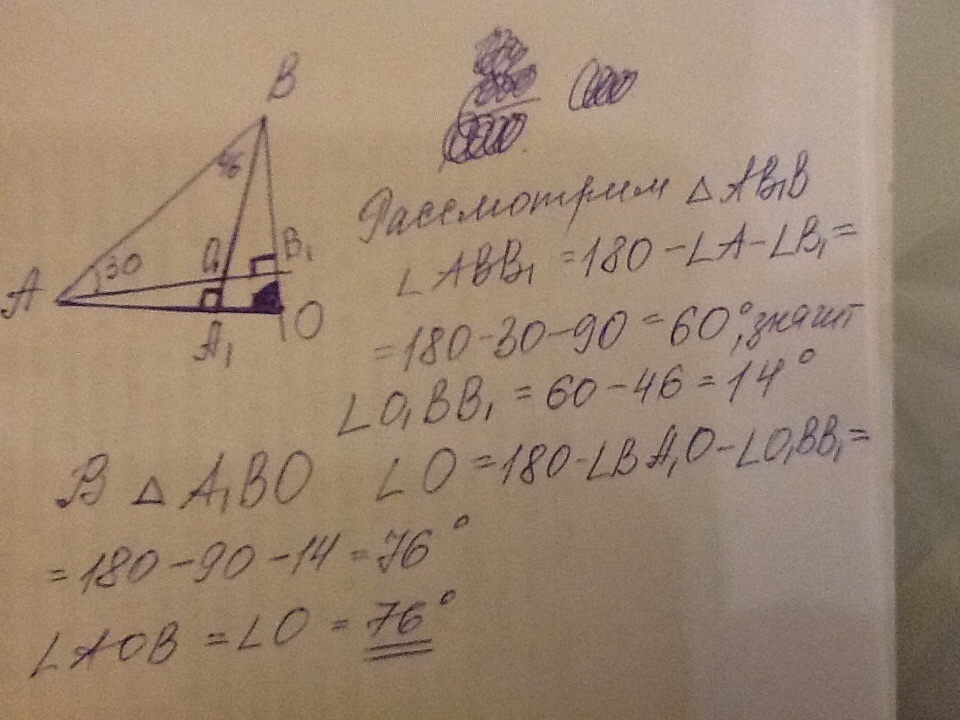 B
46
30
O₁
B₁
A
A₁
O
Рассмотрим △ AB₁B
∠ABB₁ = 180 - ∠A - ∠B₁ =
= 180 - 30 - 90 = 60°, значит
∠O₁BB₁ = 60 - 46 = 14°
В △ A₁BO ∠O = 180 - ∠BA₁O - ∠O₁BB₁ =
= 180 - 90 - 14 = 76°
∠AOB = ∠O = 76°